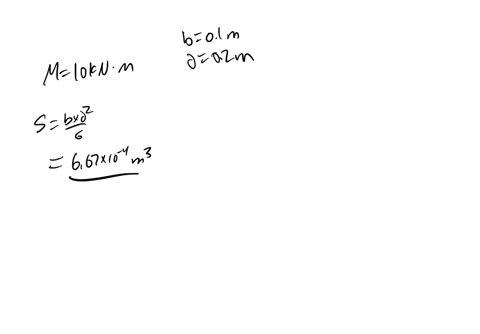 b=0.1m
d=0.2m
M=10kN·m
S=b×d²/6
=6.67×10⁻⁴ m³